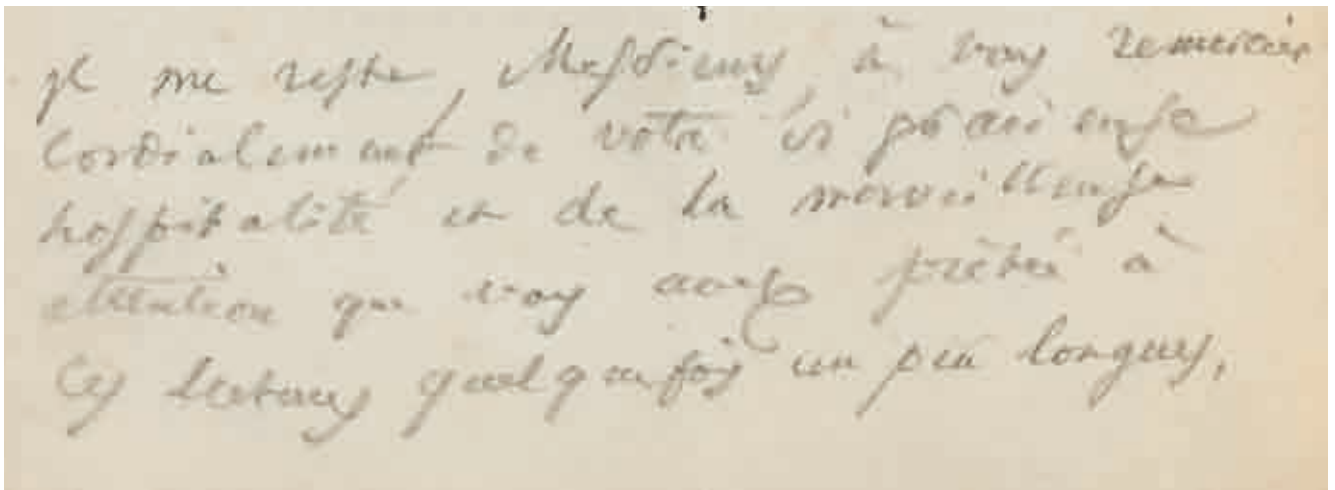 Il me reste, Messieurs, à vous remercier
cordialement de votre si précieuse
hospitalité et de la merveilleuse
attention que vous avez prêtée à
ces lectures quelquefois un peu longues,